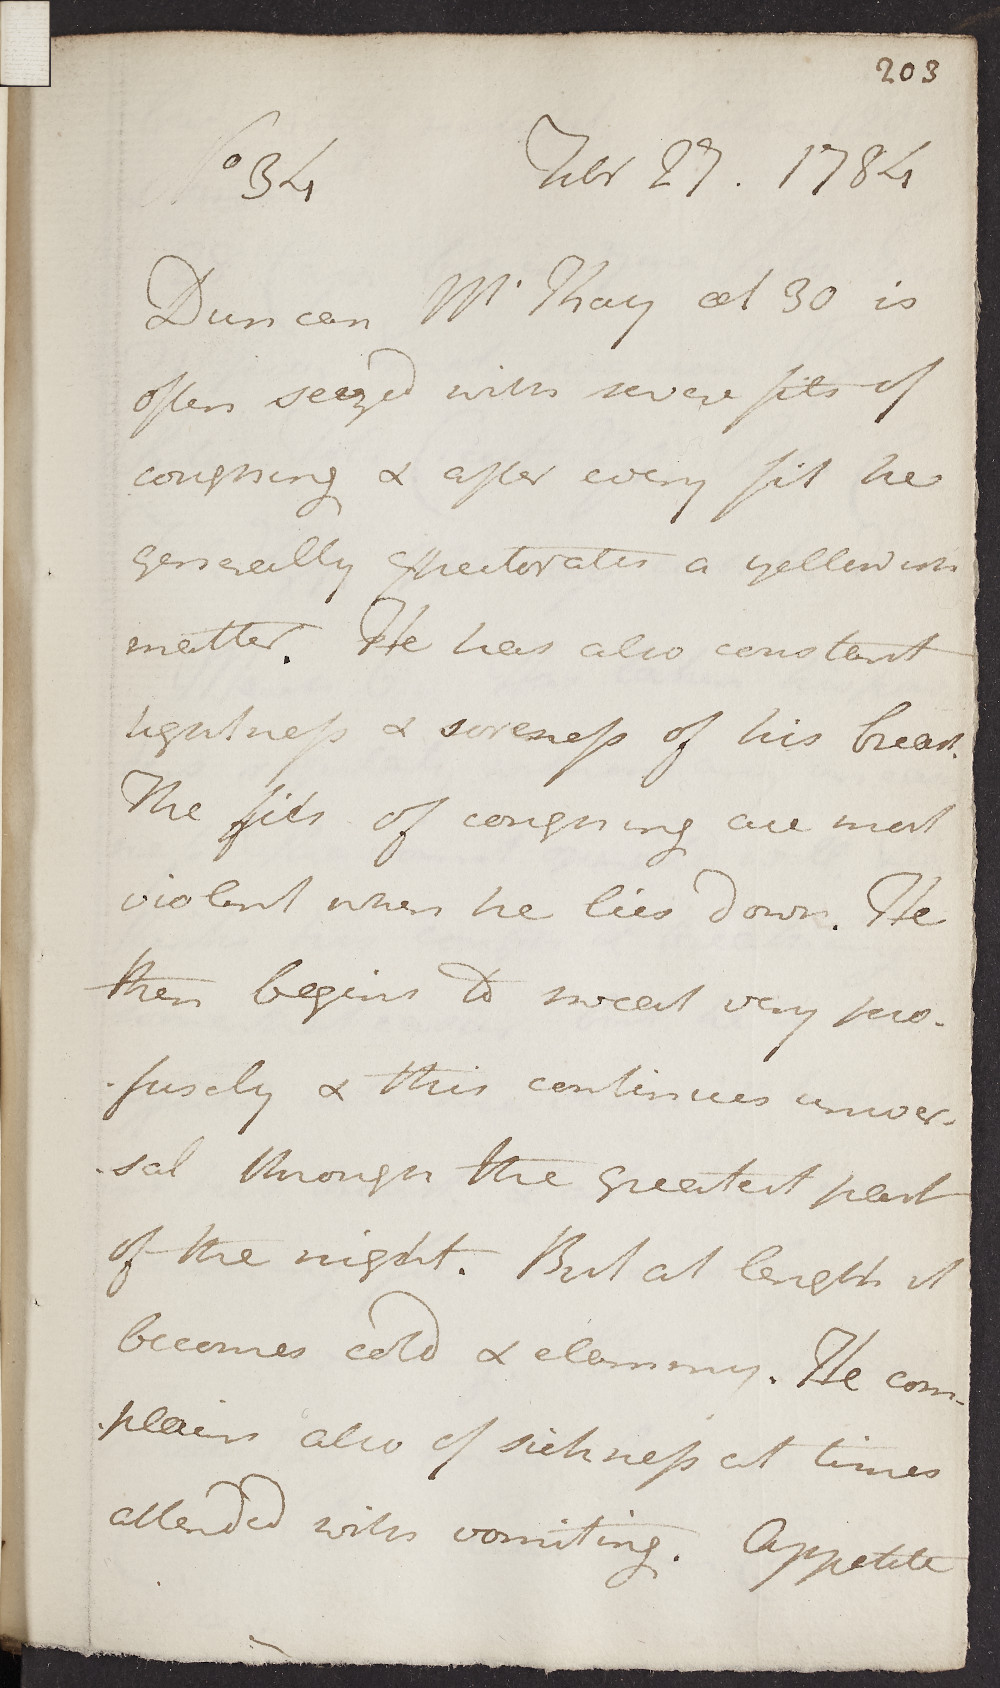 203
No 34 Febr 27. 1784
Duncan Mc Kay aet 30 is
often seezed with severe fits of
coughing & after every fit he
generally expectorates a yellowish
matter. He has also constant
tightness & soreness of his breast.
The fits of coughing are most
violent when he lies down. He
then begins to sweat very pro-
-fusely & this continues univer-
-sal through the greatest part
of the night. But at length it
becomes cold & clammy. He com-
-plains also of sickness at times
attended with vomiting. Appetite